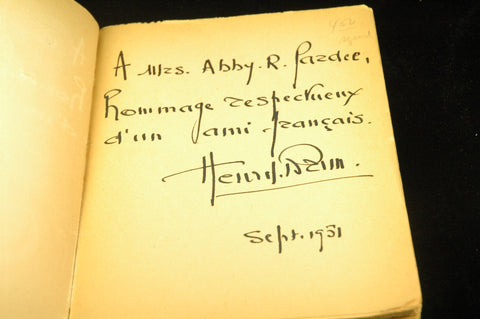 A Mrs. Abby. R. Pardee,
hommage respectueux
d'un ami français.
Sept. 1931